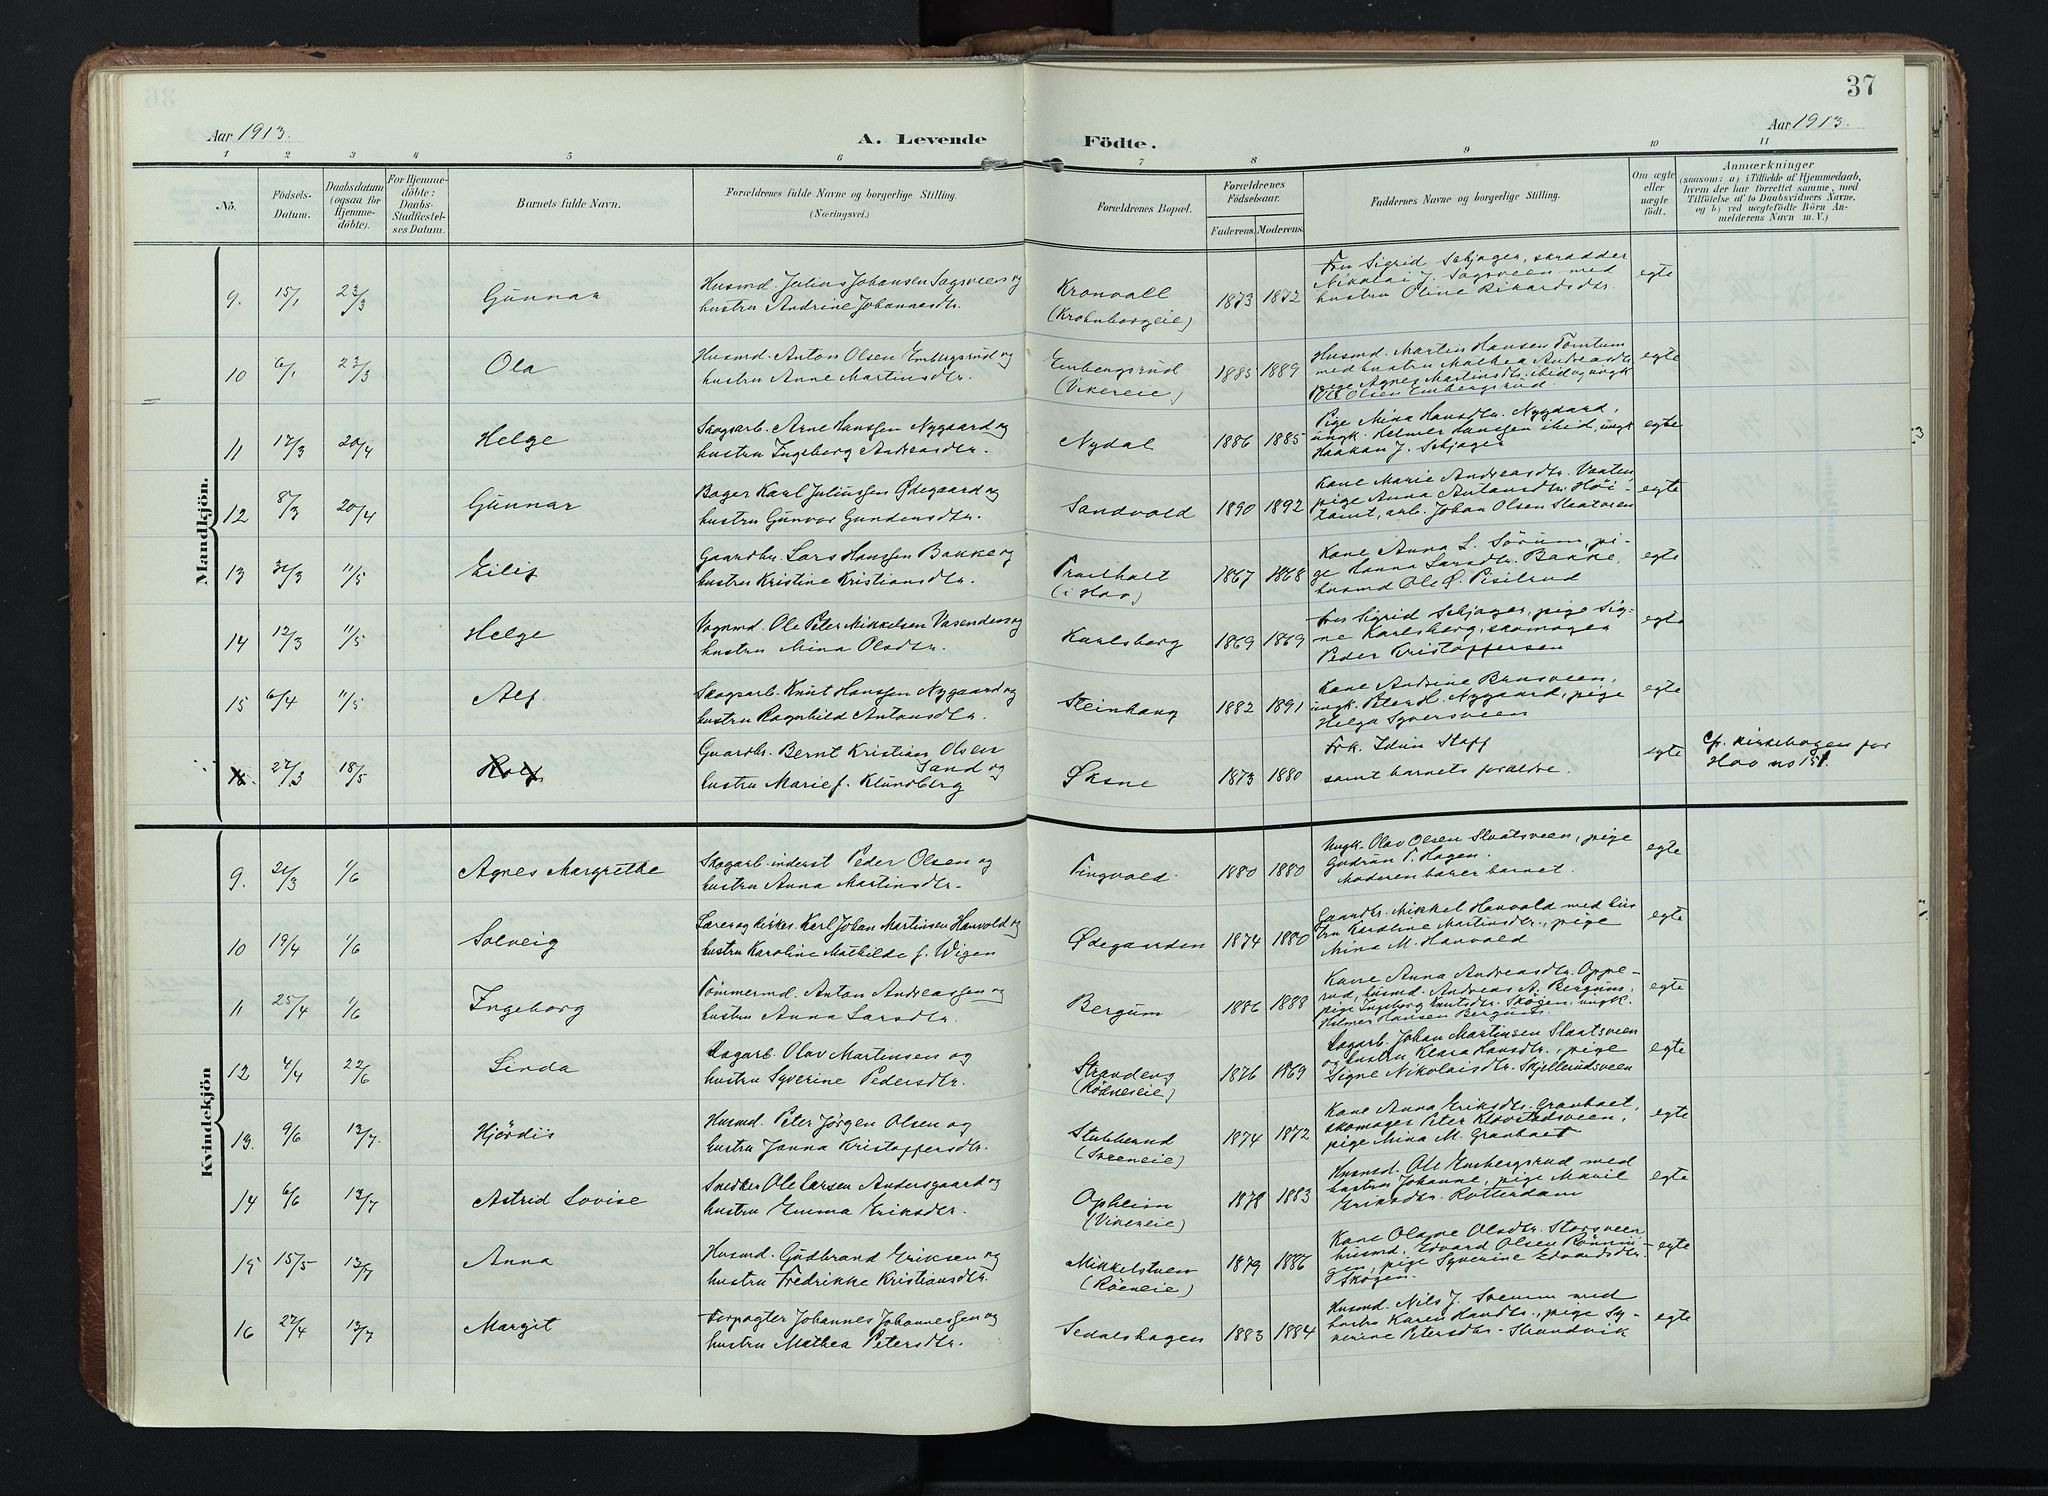 37
Aar 1913. A. Levende Födte. Aar 1913.
1 2 3 4 5 6 7 8 9 10 11
Nö.
Födsels-
Datum.
Daabsdatum
(ogsaa for
Hjemme-
döbte).
For Hjemme-
döbte:
Daabs-
Stadfæstel-
ses Datum.
Barnets fulde Navn.
Forældrenes fulde Navne og borgerlige Stilling.
(Næringsvei.)
Forældrenes Bopæl.
Forældrenes
Födselsaar.
Faderens. Moderens.
Faddernes Navne og borgerlige Stilling.
Om ægte
eller
uægte
födt.
Anmærkninger
(saasom: a) i Tilfælde af Hjemmedaab,
hvem der har forrettet samme, med
Tilföielse af to Daabsvidners Navne,
og b) ved uægtefödte Börn An-
melderens Navn m. V.)
Mandkjön.
9. 15/1 23/3 Gunnar
Husmd. Julius Johansen Sagsveen og
hustru Andrine Johannesdtr.
Kronvall
(Krohnborgeie)
1873 1872
Fru Sigrid Sebjager, skrædder
Nikolai J. Sagsveen med
hustru Oline Rikardsdtr.
egte
10 6/1 23/3 Ola
Husmd. Anton Olsen Embergsrud og
hustru Anne Martinsdtr.
Embergsrud
(Vikereie)
1885 1889
Husmd. Martin Hansen Tömtum
med hustru Mathea Andreasdtr.
pige Agnes Martinsdtr. ibid og ungk.
Ole Olsen Embergsrud.
egte
11 17/3 20/4 Helge
Skogsarb. Arne Hanssen Nygaard og
hustru Ingeborg Andreasdtr.
Nydal
1886 1885
Pige Mina Hansdtr. Nygaard,
ungk. Helmer Hanssen ibid, ungk
Haakan J. Sebjager
egte
12 8/3 20/4 Gunnar
Bager Karl Juliussen Ødegaard og
hustru Gunvor Gundersdtr.
Sandvold
1890 1892
Kone Marie Andreasdtr. Vaaten,
pige Anna Antonsdtr. Höi-
tomt, arb. Johan Olsen Slaatsveen
egte
13 31/3 11/5 Eilif
Gaardbr. Lars Hanssen Bakke og
hustru Kristine Kristiansdtr.
(i Hov)
1867 1868
Kone Anna L. Sörum, pi-
ge Hanna Larsdtr. Bakke,
husmd Ole Ø. Pisilrud
egte
14 12/3 11/5 Helge
Vognmd. Ole Peter Mikkelsen Vasenden og
hustru Mina Olsdtr.
Karlsborg
1869 1869
Fru Sigrid Sebjager, pige Sig-
ne Karlsberg, skomager
Peder Kristoffersen
egte
15 6/4 11/5 Alf
Skogsarb. Knut Hanssen Nygaard og
hustru Ragnhild Antonsdtr.
Steinhaug
1882 1891
Kone Andrine Brusveen,
ungk. Peter H. Nygaard, pige
Helga Syversveen
egte
27/3 18/5 Rolf
Gaardbr. Bernt Kristian Olsen
Sand og
hustru Marie f. Klundberg
Øksne
1873 1880
Frk. Idun Staff
samt barnets forældre.
egte
cfr. kirkebogen for
Hov no 15!
Kvindekjön
9. 21/3 1/6 Agnes Margrethe
Skogarb. inderst Peder Olsen og
hustru Anna Martinsdtr.
Tingvold
1880 1880
Ungk. Olav Olsen Slaatsveen, pige
Gudrun T. Hagen.
Moderen barer barnet.
egte
10 19/4 1/6 Solveig
Lærer og kirkes. Karl Johan Martinsen Hanvold og
hustru Karoline Mathilde f. Wigen
Ødegaarden
1874 1880
Gaardbr. Mikkel Hanvold med hus-
tru Karoline Martinsdtr., pige
Mina M. Hanvold
egte
11 25/4 1/6 Ingeborg
Tömmermd. Anton Andreassen og
hustru Anna Larsdtr.
Bergum
1886 1888
Kone Anna Andreasdtr. Oppe-
rud, husmd. Andreas A. Bergum,
pige Ingeborg Knutsdtr. Skogen, ungk.
Helmer Hansen Bergum.
egte
12 4/4 22/6 Linda
Dagarb. Olav Martinsen og
hustru Syverine Pedersdtr.
Strandeng
(Röeneeie)
1876 1869
Dagarb. Johan Martinsen Slaatsveen
og hustru Klara Hansdtr., pige
Signe Nikolaisdtr. Skjellerudsveen
egte
13. 9/6 13/7. Hjördis
Husmd. Peter Jörgen Olsen og
hustru Janna Kristoffersdtr.
Stubberud
(Sveneeie)
1874 1872
Kone Anna Eriksdtr. Granhaet,
skomager Peter Klovstadsveen,
pige Mina M. Granhaet
egte
14 6/6 13/7 Astrid Lovise
Snedker Ole Larsen Andersgaard og
hustru Emma Eriksdtr.
Opheim
(Vikereie)
1878 1883
Husmd. Ole Embergsrud med
hustru Johanne, pige Maril
Eriksdtr. Rotterdam
egte
15 15/5 13/7 Anna
Husmd. Gudbrand Eriksen og
hustru Fredrikke Kristiansdtr.
Mikkelstuen
(Röeneie)
1879 1886
Kone Olagne Olsdtr. Storsveen,
husmd. Edvard Olsen Rönnin-
gen, pige Syverine Edvardsdtr.
Skogen.
egte
16 27/4 13/7 Margit
Forpagter Johannes Johannessen og
hustru Mathea Petersdtr.
Sedalshagen
1883 1884
Husmd. Nils J. Sveum med
hustru Karen Hansdtr., pige Sy-
verine Petersdtr. Strandvik
egte